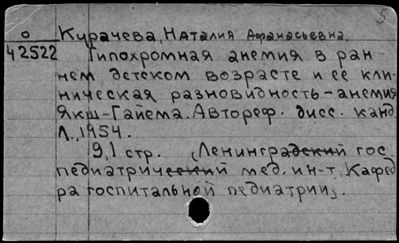 5
О Курачева, Наталия Афанасьевна.
42522 Гипохромная анемия в ран-
нем детском возрасте и ее кли-
ническая разновидность-анемия
Якш-Гайема. Автореф. дисс. канд.
Л., 1954.
9,1 стр. (Ленинградский гос.
педиатрический мед. ин-т, Кафед
ра госпитальной педиатрии).